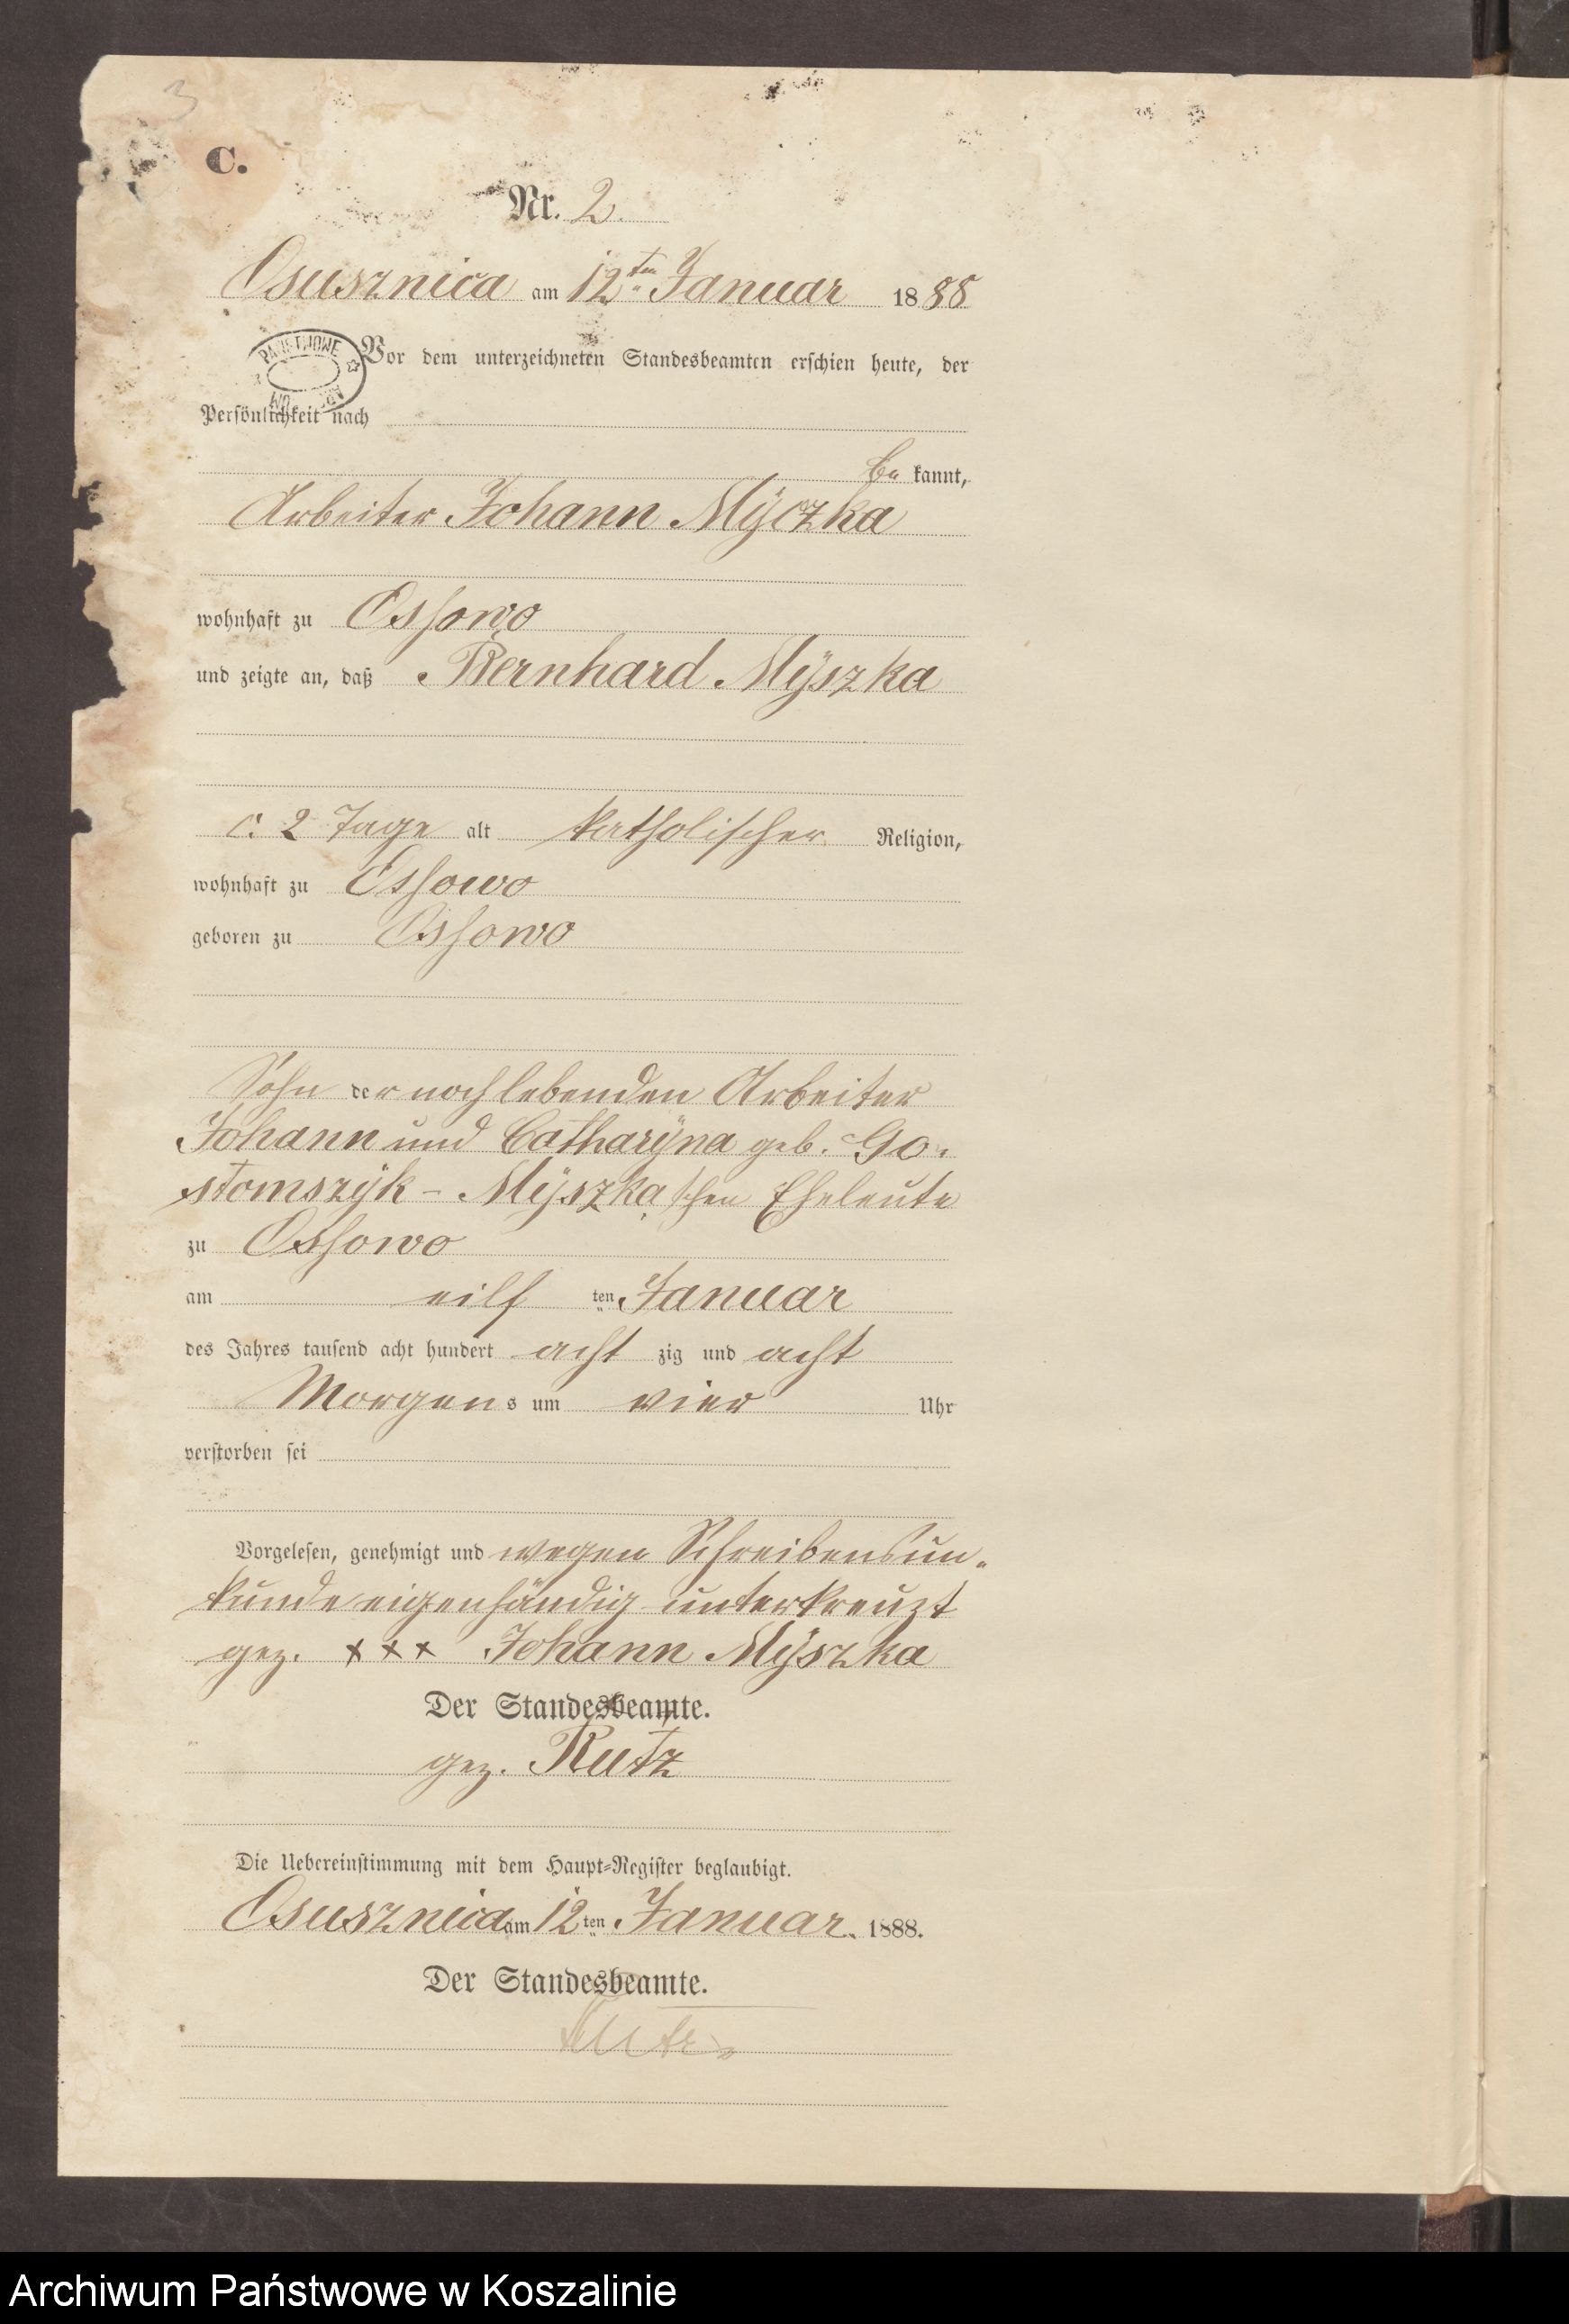 3
C.
Nr. 2.
Osusznica am 12ten Januar 1888
Vor dem unterzeichneten Standesbeamten erschien heute, der
PAŃSTWOWE
Persönlichkeit nach
be kannt,
Arbeiter Johann Myczka
wohnhaft zu Ossowo
und zeigte an, daß Bernhard Mÿszka
c. 2 Tage alt katholischer Religion,
wohnhaft zu Ossowo
geboren zu Ossowo
Sohn der noch lebenden Arbeiter
Johann und Catharÿna geb. Go-
stomszÿk - Mÿszka'schen Eheleute
zu Ossowo
am eilf ten Januar
des Jahres tausend acht hundert acht zig und acht
Morgens um vier Uhr
verstorben sei
Vorgelesen, genehmigt und wegen Schreibensun-
kunde eigenhändig unterkreuzt
gez. xxx Johann Mÿszka
Der Standesbeamte.
gez. Rutz
Die Uebereinstimmung mit dem Haupt=Register beglaubigt.
Osusznica am 12ten Januar. 1888.
Der Standesbeamte.
Rutz
Archiwum Państwowe w Koszalinie